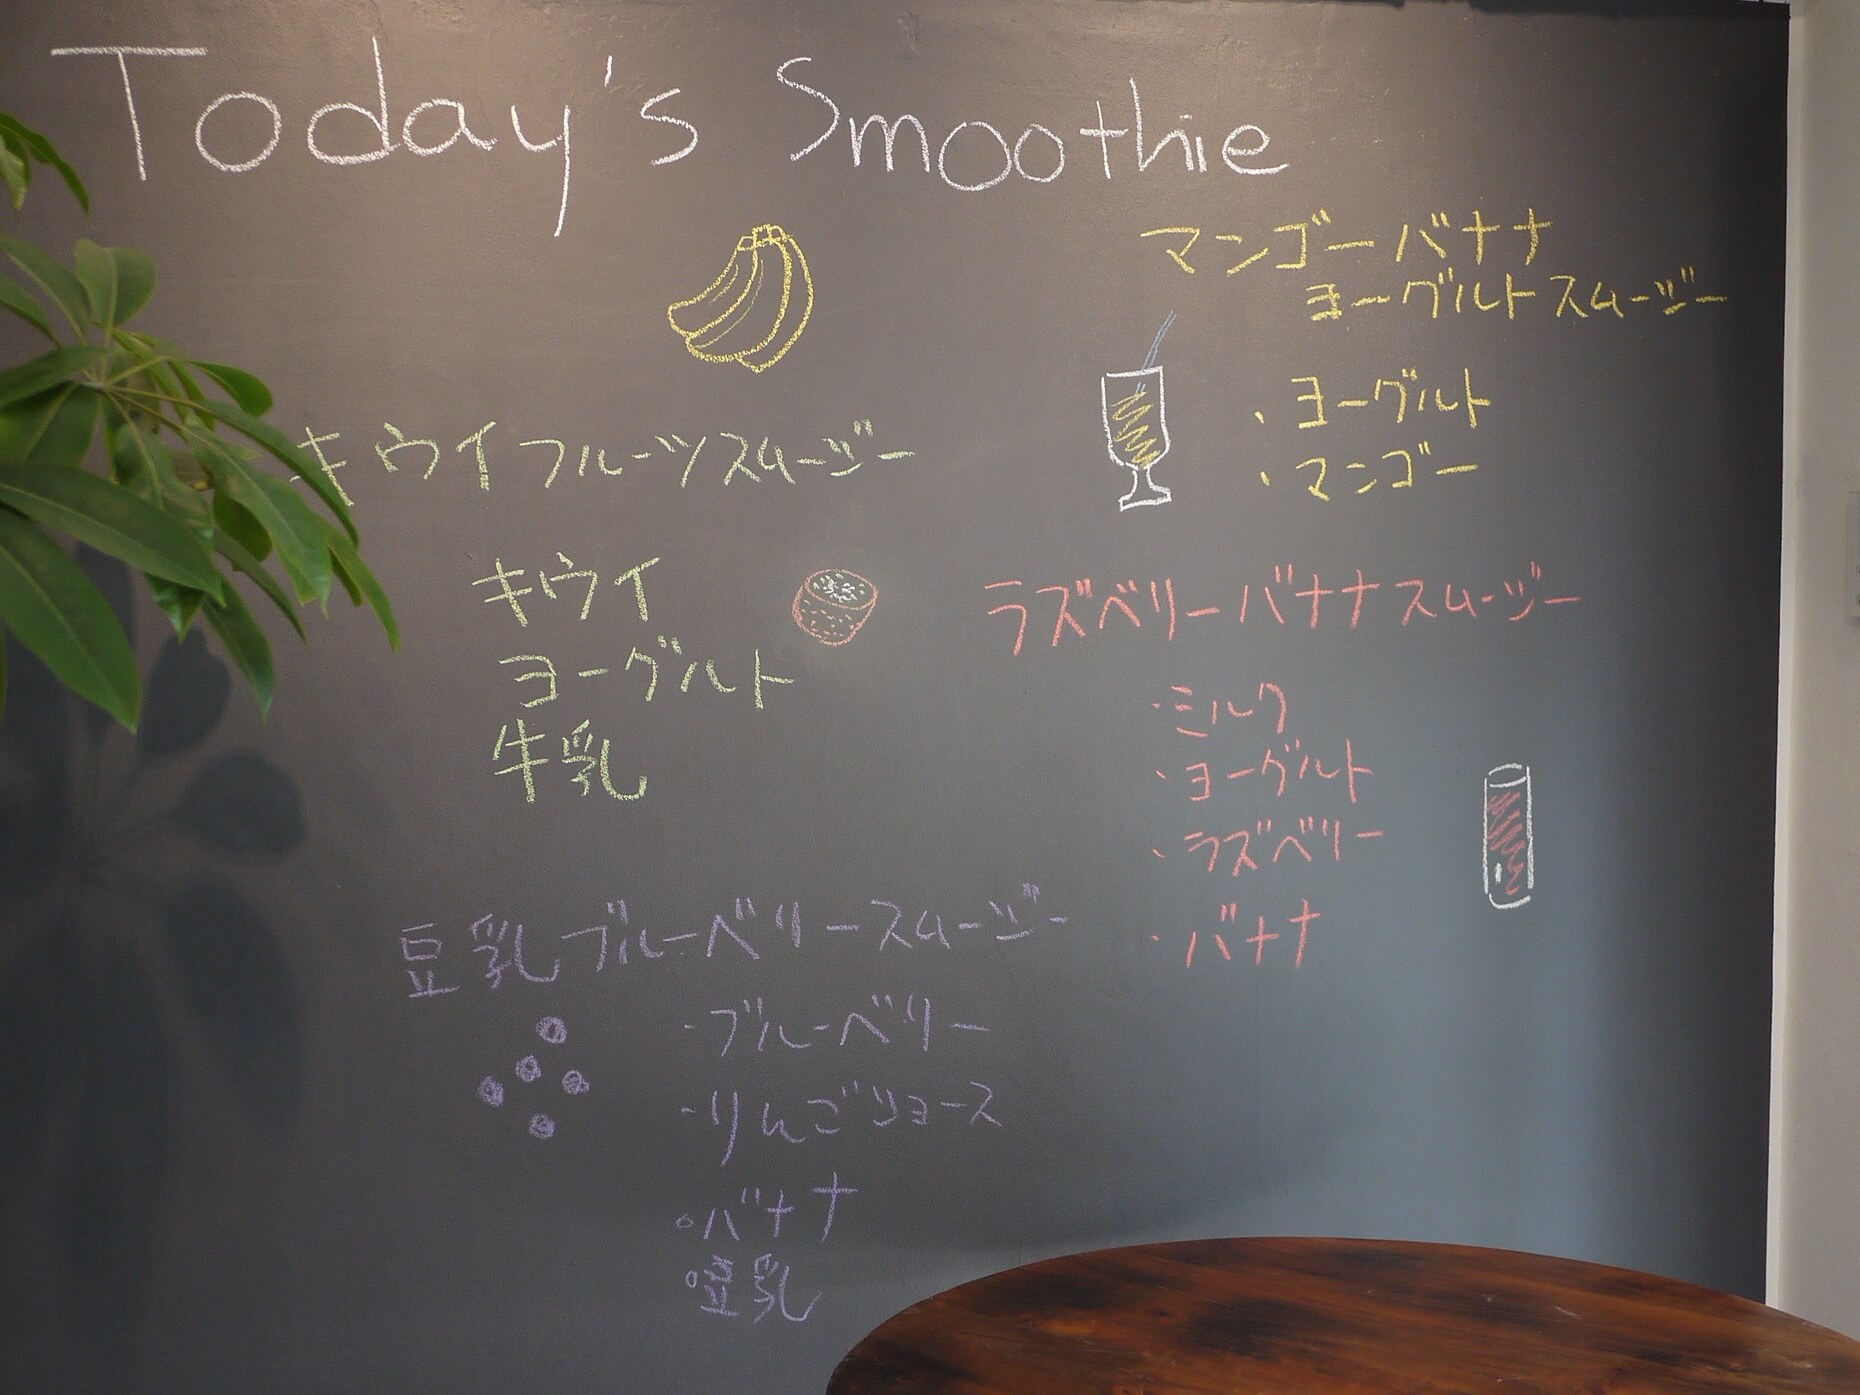 Today's Smoothie
マンゴーバナナ
ヨーグルトスムージー
・ヨーグルト
・マンゴー
キウイフルーツスムージー
キウイ
ヨーグルト
牛乳
ラズベリーバナナスムージー
・ミルク
・ヨーグルト
・ラズベリー
・バナナ
豆乳ブルーベリースムージー
・ブルーベリー
・りんごジュース
・バナナ
・豆乳